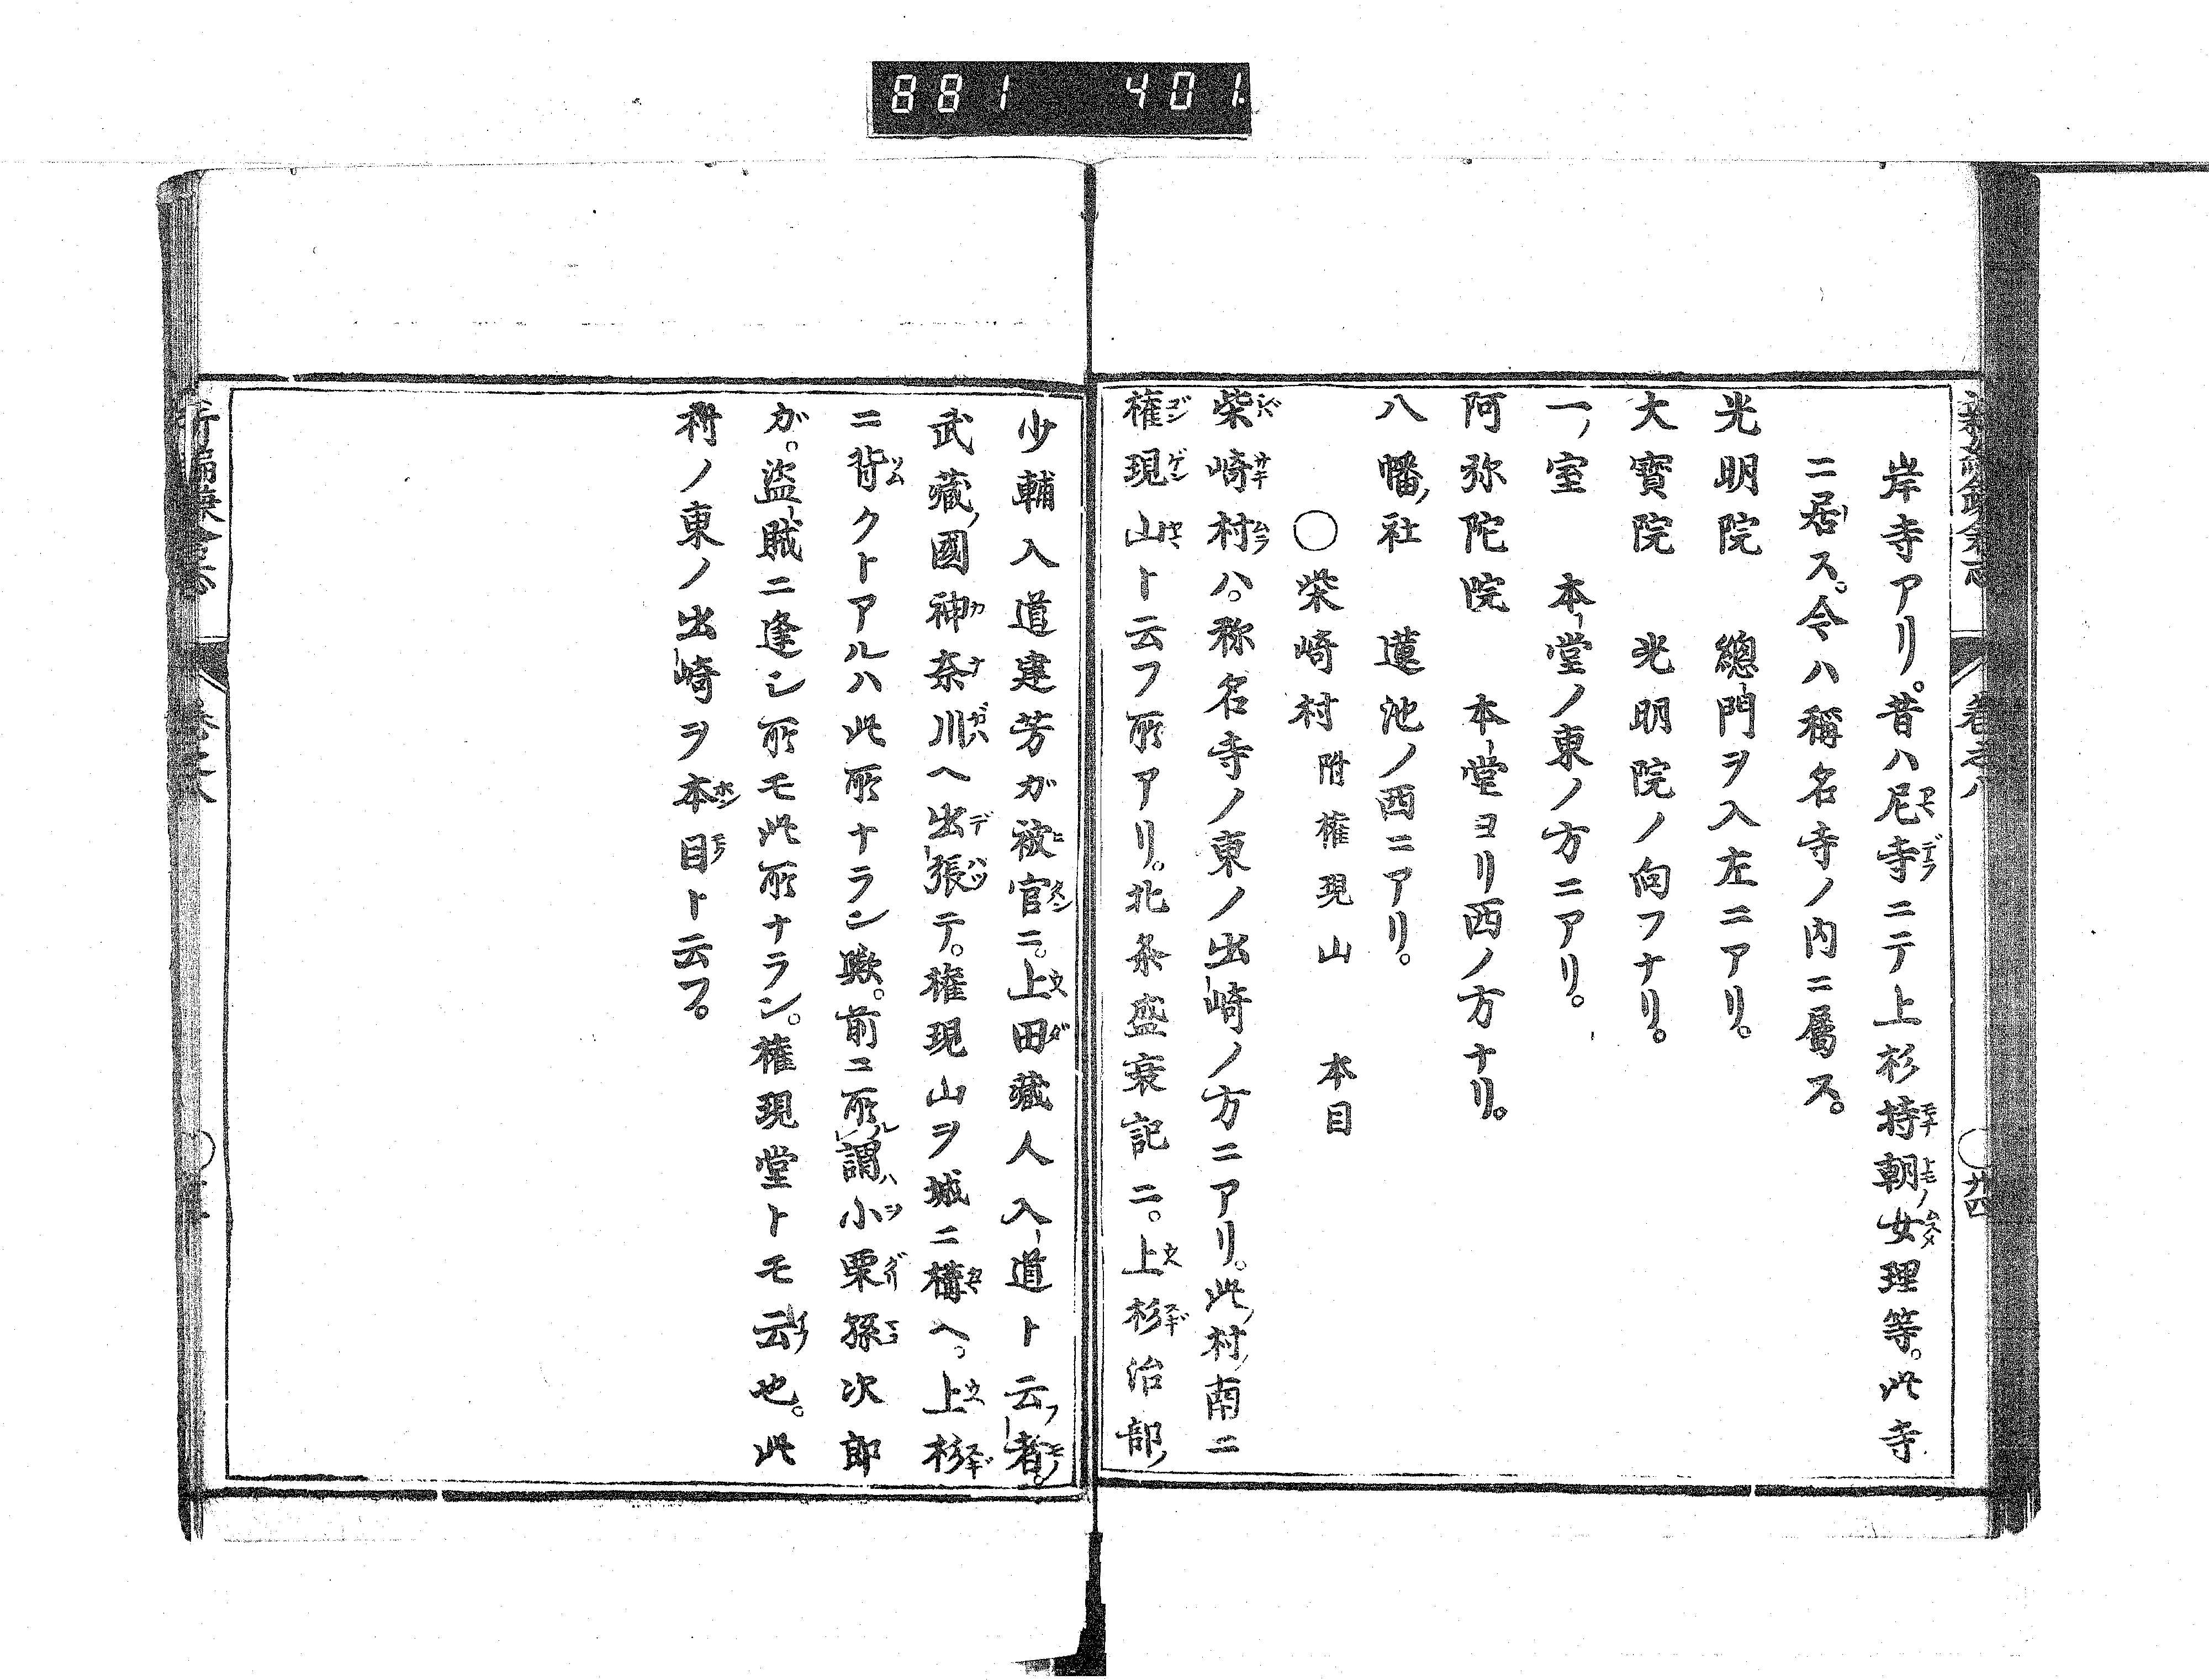 881 401
岸寺アリ。昔ハ尼寺ニテ上杉持朝ノ女理等。此寺
ニ居ス。今ハ稱名寺ノ内ニ屬ス。
光明院 總門ヲ入左ニアリ。
大寶院 光明院ノ向フナリ。
一ノ室 本堂ノ東ノ方ニアリ。
阿弥陀院 本堂ヨリ西ノ方ナリ。
八幡ノ社 蓮池ノ西ニアリ。
○柴崎村 附権現山 本目
柴崎村ハ。称名寺ノ東ノ出崎ノ方ニアリ。此ノ村ノ南ニ
権現山ト云フ所アリ。北条盛衰記ニ。上杉治部ノ
少輔入道建芳ガ被官ニ。上田藏人入道ト云フ者。
武藏ノ國神奈川ヘ出張テ。権現山ヲ城ニ構ヘ。上杉
ニ背クトアルハ此所ナラン歟。前ニ所謂小栗孫次郎
ガ。盗賊ニ逢シ所モ此所ナラン。権現堂トモ云也。此
所ノ東ノ出崎ヲ本目ト云フ。